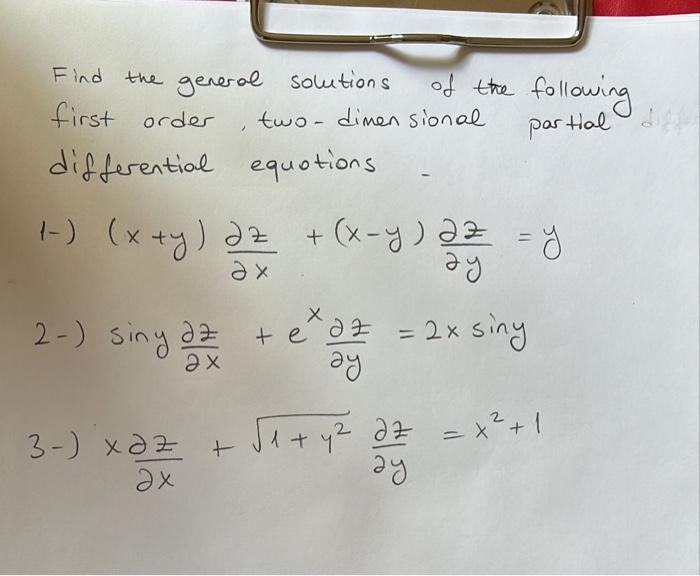 Find the general solutions of the following
first order, two-dimensional partial
differential equations
1-) (x+y) ∂z/∂x + (x-y) ∂z/∂y = y
2-) siny ∂z/∂x + e^x ∂z/∂y = 2x siny
3-) x ∂z/∂x + √(1+y²) ∂z/∂y = x²+1